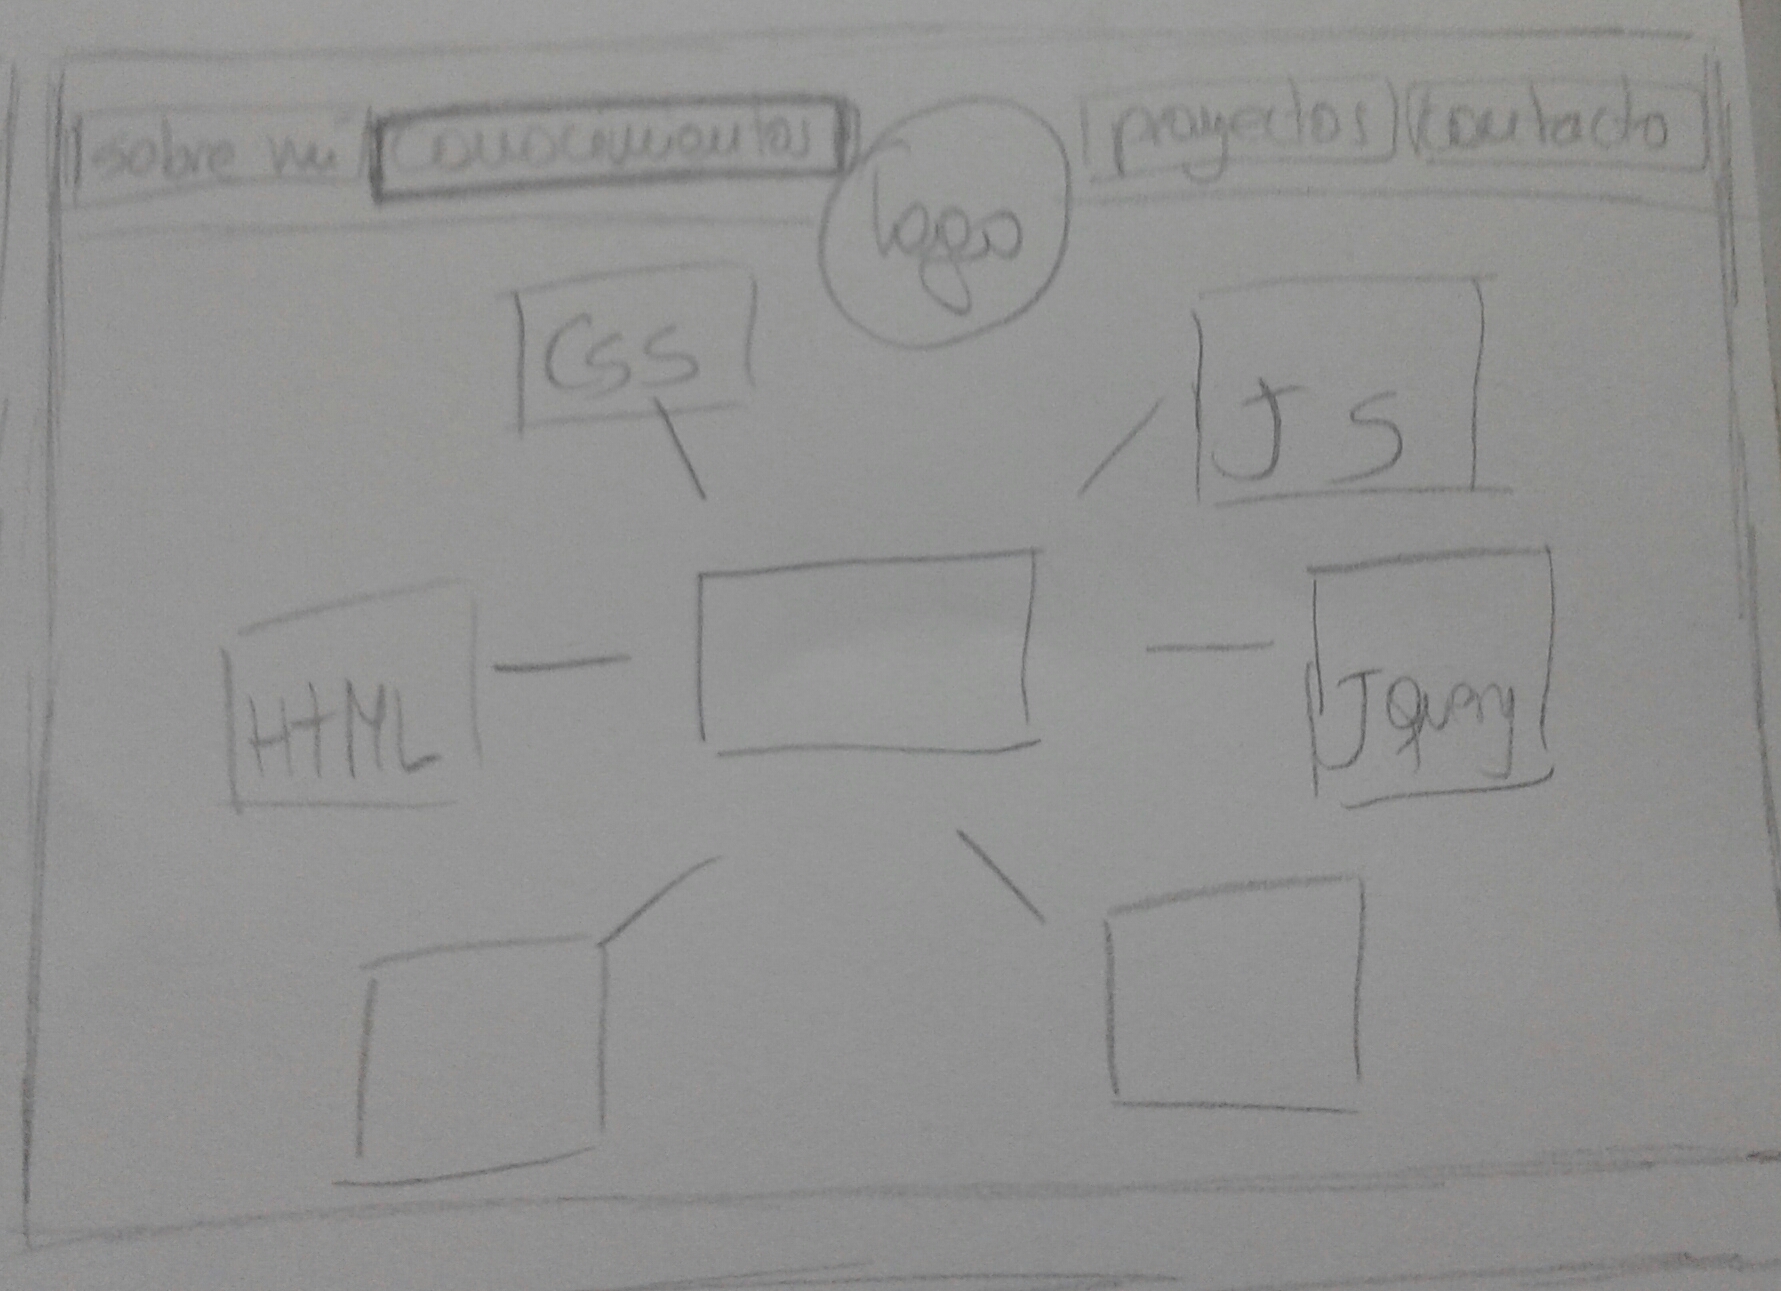 sobre mi conocimientos logo proyectos contacto
CSS
JS
HTML
JQuery